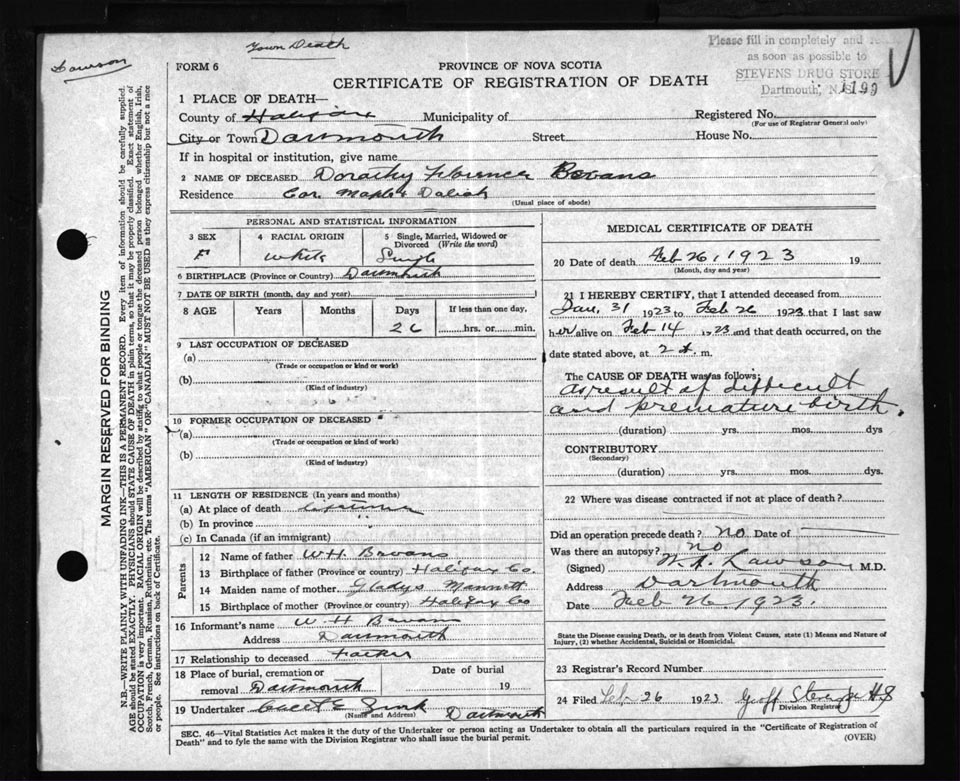 Town Death
Lawson
Please fill in completely and
as soon as possible to
STEVENS DRUG STORE
Dartmouth, N.S.
1199
FORM 6
PROVINCE OF NOVA SCOTIA
CERTIFICATE OF REGISTRATION OF DEATH
1 PLACE OF DEATH—
County of Halifax Municipality of Registered No.
(For use of Registrar General only)
City or Town Dartmouth Street House No.
If in hospital or institution, give name
2 NAME OF DECEASED Dorothy Florence Bevans
Residence Cor. Maple & Dahlia
(Usual place of abode)
PERSONAL AND STATISTICAL INFORMATION
3 SEX 4 RACIAL ORIGIN 5 Single, Married, Widowed or
Divorced (Write the word)
F White Single
6 BIRTHPLACE (Province or Country) Dartmouth
7 DATE OF BIRTH (month, day and year)
8 AGE Years Months Days If less than one day,
26 hrs. or min.
9 LAST OCCUPATION OF DECEASED
(a)
(Trade or occupation or kind or work)
(b)
(Kind of industry)
10 FORMER OCCUPATION OF DECEASED
(a)
(Trade or occupation or kind of work)
(b)
(Kind of industry)
11 LENGTH OF RESIDENCE (In years and months)
(a) At place of death lifetime
(b) In province
(c) In Canada (if an immigrant)
Parents
12 Name of father W H Bevans
13 Birthplace of father (Province or country) Halifax Co.
14 Maiden name of mother Gladys Mannett
15 Birthplace of mother (Province or country) Halifax Co
16 Informant's name W. H Bevans
Address Dartmouth
17 Relationship to deceased Father
18 Place of burial, cremation or Date of burial
removal Dartmouth 19
19 Undertaker Dartmouth
(Name and Address)
MEDICAL CERTIFICATE OF DEATH
20 Date of death Feb 26, 1923 19
(Month, day and year)
21 I HEREBY CERTIFY, that I attended deceased from
Jan. 31 1923 to Feb 26 1923 that I last saw
her alive on Feb 14 1923 and that death occurred, on the
date stated above, at 2 m.
The CAUSE OF DEATH was as follows:
As result of difficult
and premature birth.
(duration) yrs. mos. dys
CONTRIBUTORY
(Secondary)
(duration) yrs. mos. dys.
22 Where was disease contracted if not at place of death?
Did an operation precede death? no Date of
Was there an autopsy? no
(Signed) Lawson M.D.
Address Dartmouth
Date Feb 26. 1923.
State the Disease causing Death, or in death from Violent Causes, state (1) Means and Nature of
Injury, (2) whether Accidental, Suicidal or Homicidal.
23 Registrar's Record Number
24 Filed Feb. 26 1923
Division Registrar
SEC. 46—Vital Statistics Act makes it the duty of the Undertaker or person acting as Undertaker to obtain all the particulars required in the "Certificate of Registration of
Death" and to fyle the same with the Division Registrar who shall issue the burial permit. (OVER)
MARGIN RESERVED FOR BINDING
N.B.—WRITE PLAINLY WITH UNFADING INK—THIS IS A PERMANENT RECORD. Every item of information should be carefully supplied.
AGE should be stated EXACTLY. PHYSICIANS should STATE CAUSE OF DEATH in plain terms, so that it may be properly classified. Exact statement of
OCCUPATION is very important. RACIAL ORIGIN will be described by stating to what people or tongue the deceased person belonged whether English, Irish,
Scotch, French, German, Russian, Ruthenian, etc. The terms "AMERICAN" OR "CANADIAN" MUST NOT BE USED as they express citizenship but not a race
or people. See instructions on back of Certificate.